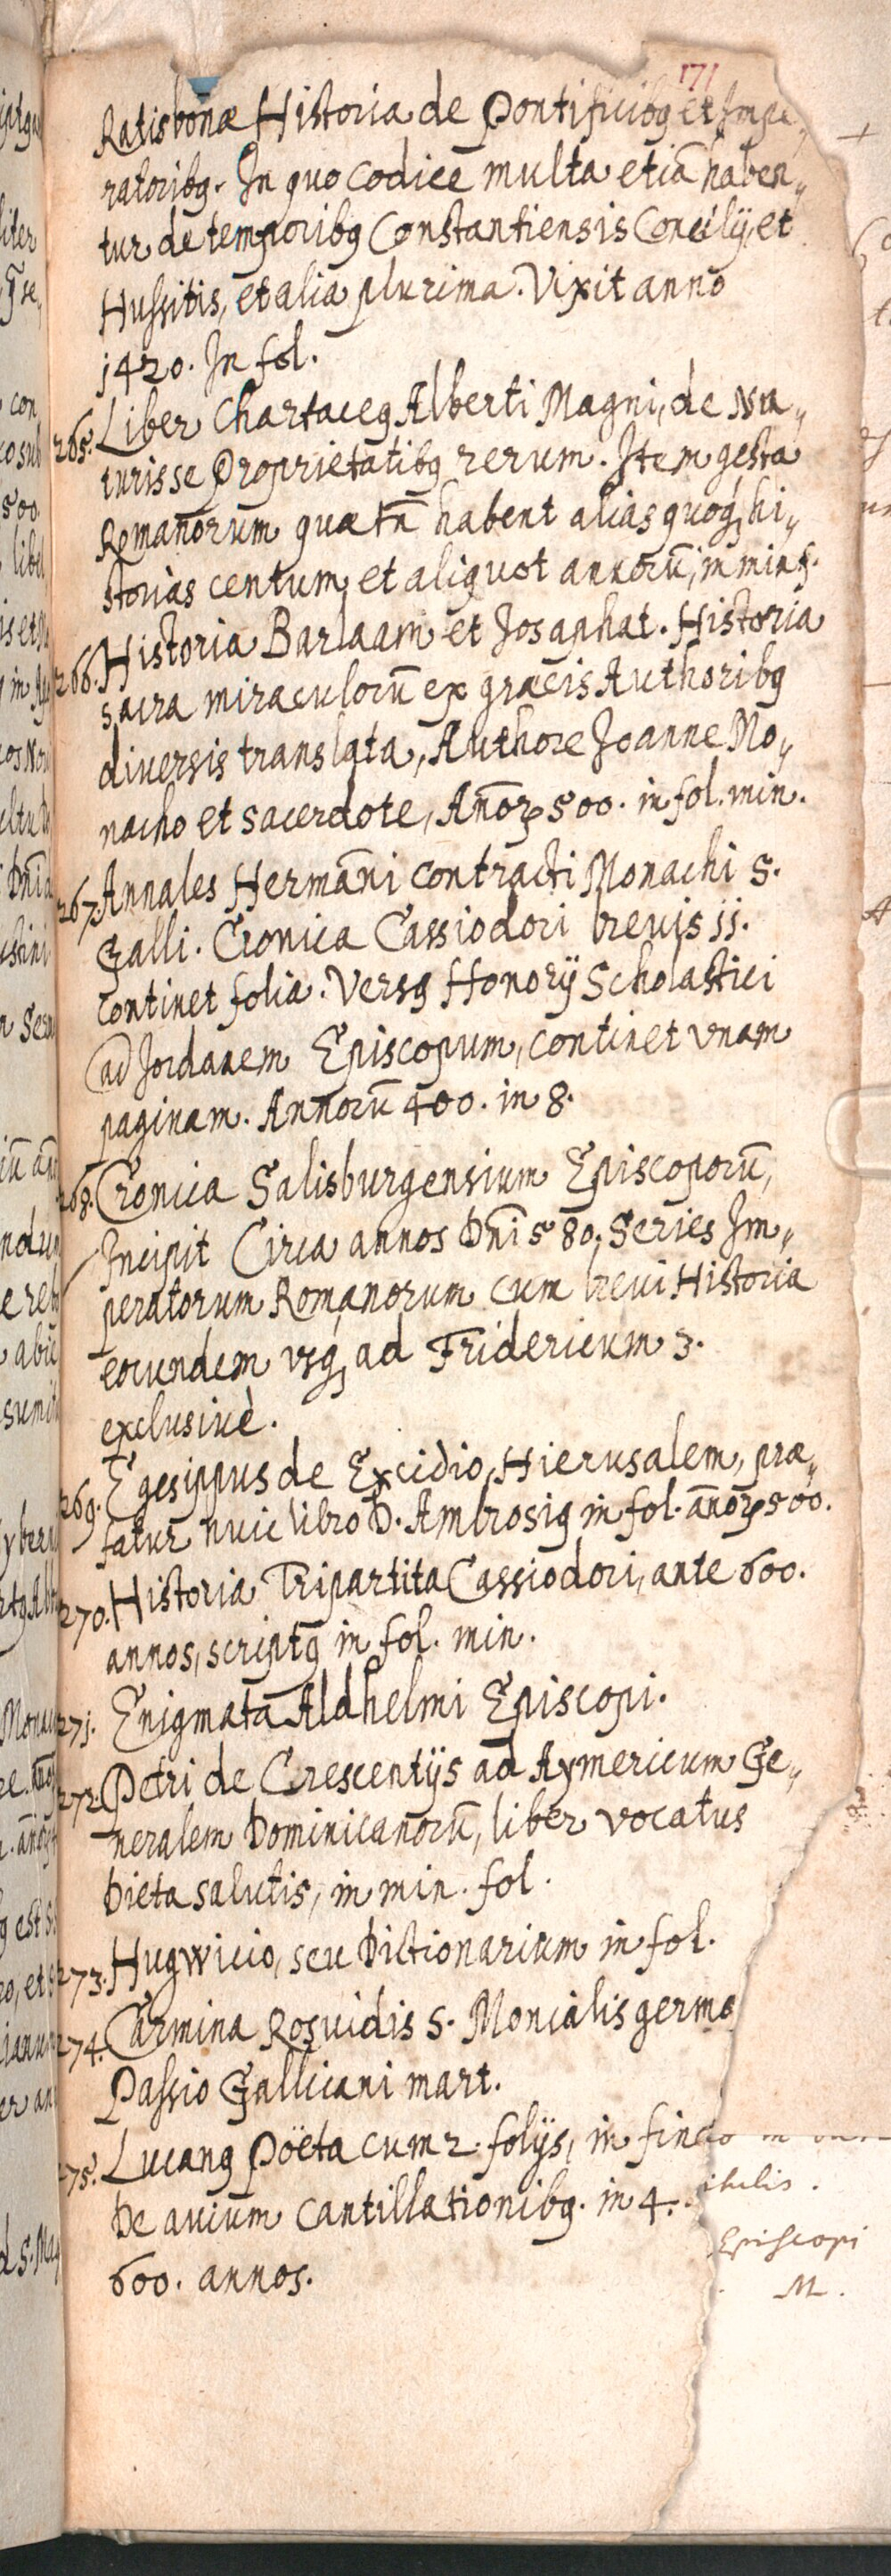 171
Ratisbonæ Historia de Pontificibꝰ et Impe„
ratoribꝰ. In quo codice multa etiā haben„
tur de temporibꝰ Constantiensis Concilij, et
Hussitis, et alia plurima. Vixit anno
1420. In fol.
265. Liber Chartaceꝰ Alberti Magni, de Na„
turis se Proprietatibꝰ rerum. Item gesta
Romanorum quæ tn̄ habent alias quoqꝫ hi„
storias centum et aliquot annorū, in min f.
266. Historia Barlaam et Josaphat. Historia
sacra miraculorū ex græcis Authoribꝰ
diversis translata, Authore Joanne Mo„
nacho et sacerdote, Añoꝝ 500. in fol. min.
267. Annales Hermāni contracti Monachi S.
Galli. Cronica Cassiodori brevis jj.
continet folia. Versꝰ Honorij Scholastici
ad Jordanem Episcopum, continet vnam
paginam. Annorū 400. in 8.
268. Cronica Salisburgensium Episcoporū,
Incipit Circa annos Dn̄i 580. Series Im„
peratorum Romanorum cum brevi Historia
eorundem vsqꝫ ad Fridericum 3.
exclusiuè.
269. Egesippus de Excidio Hierusalem, præ„
fatur huic libro D. Ambrosiꝰ in fol. añoꝝ 500.
270. Historia Tripartita Cassiodori, ante 600.
annos, scriptꝰ in fol. min.
271. Enigmata Aldhelmi Episcopi.
272. Petri de Crescentijs ad Aymericum Ge„
neralem Dominicanorū, liber vocatus
Dieta salutis, in min. fol.
273. Hugwicio, seu Dictionarium in fol.
274. Carmina Rosuidis S. Monialis germa
Passio Gallicani mart.
275. Lucanꝰ Poëta cum 2. folijs, in fine
De avium cantillationibꝰ. in 4.
600. annos.
Episcopi
M.